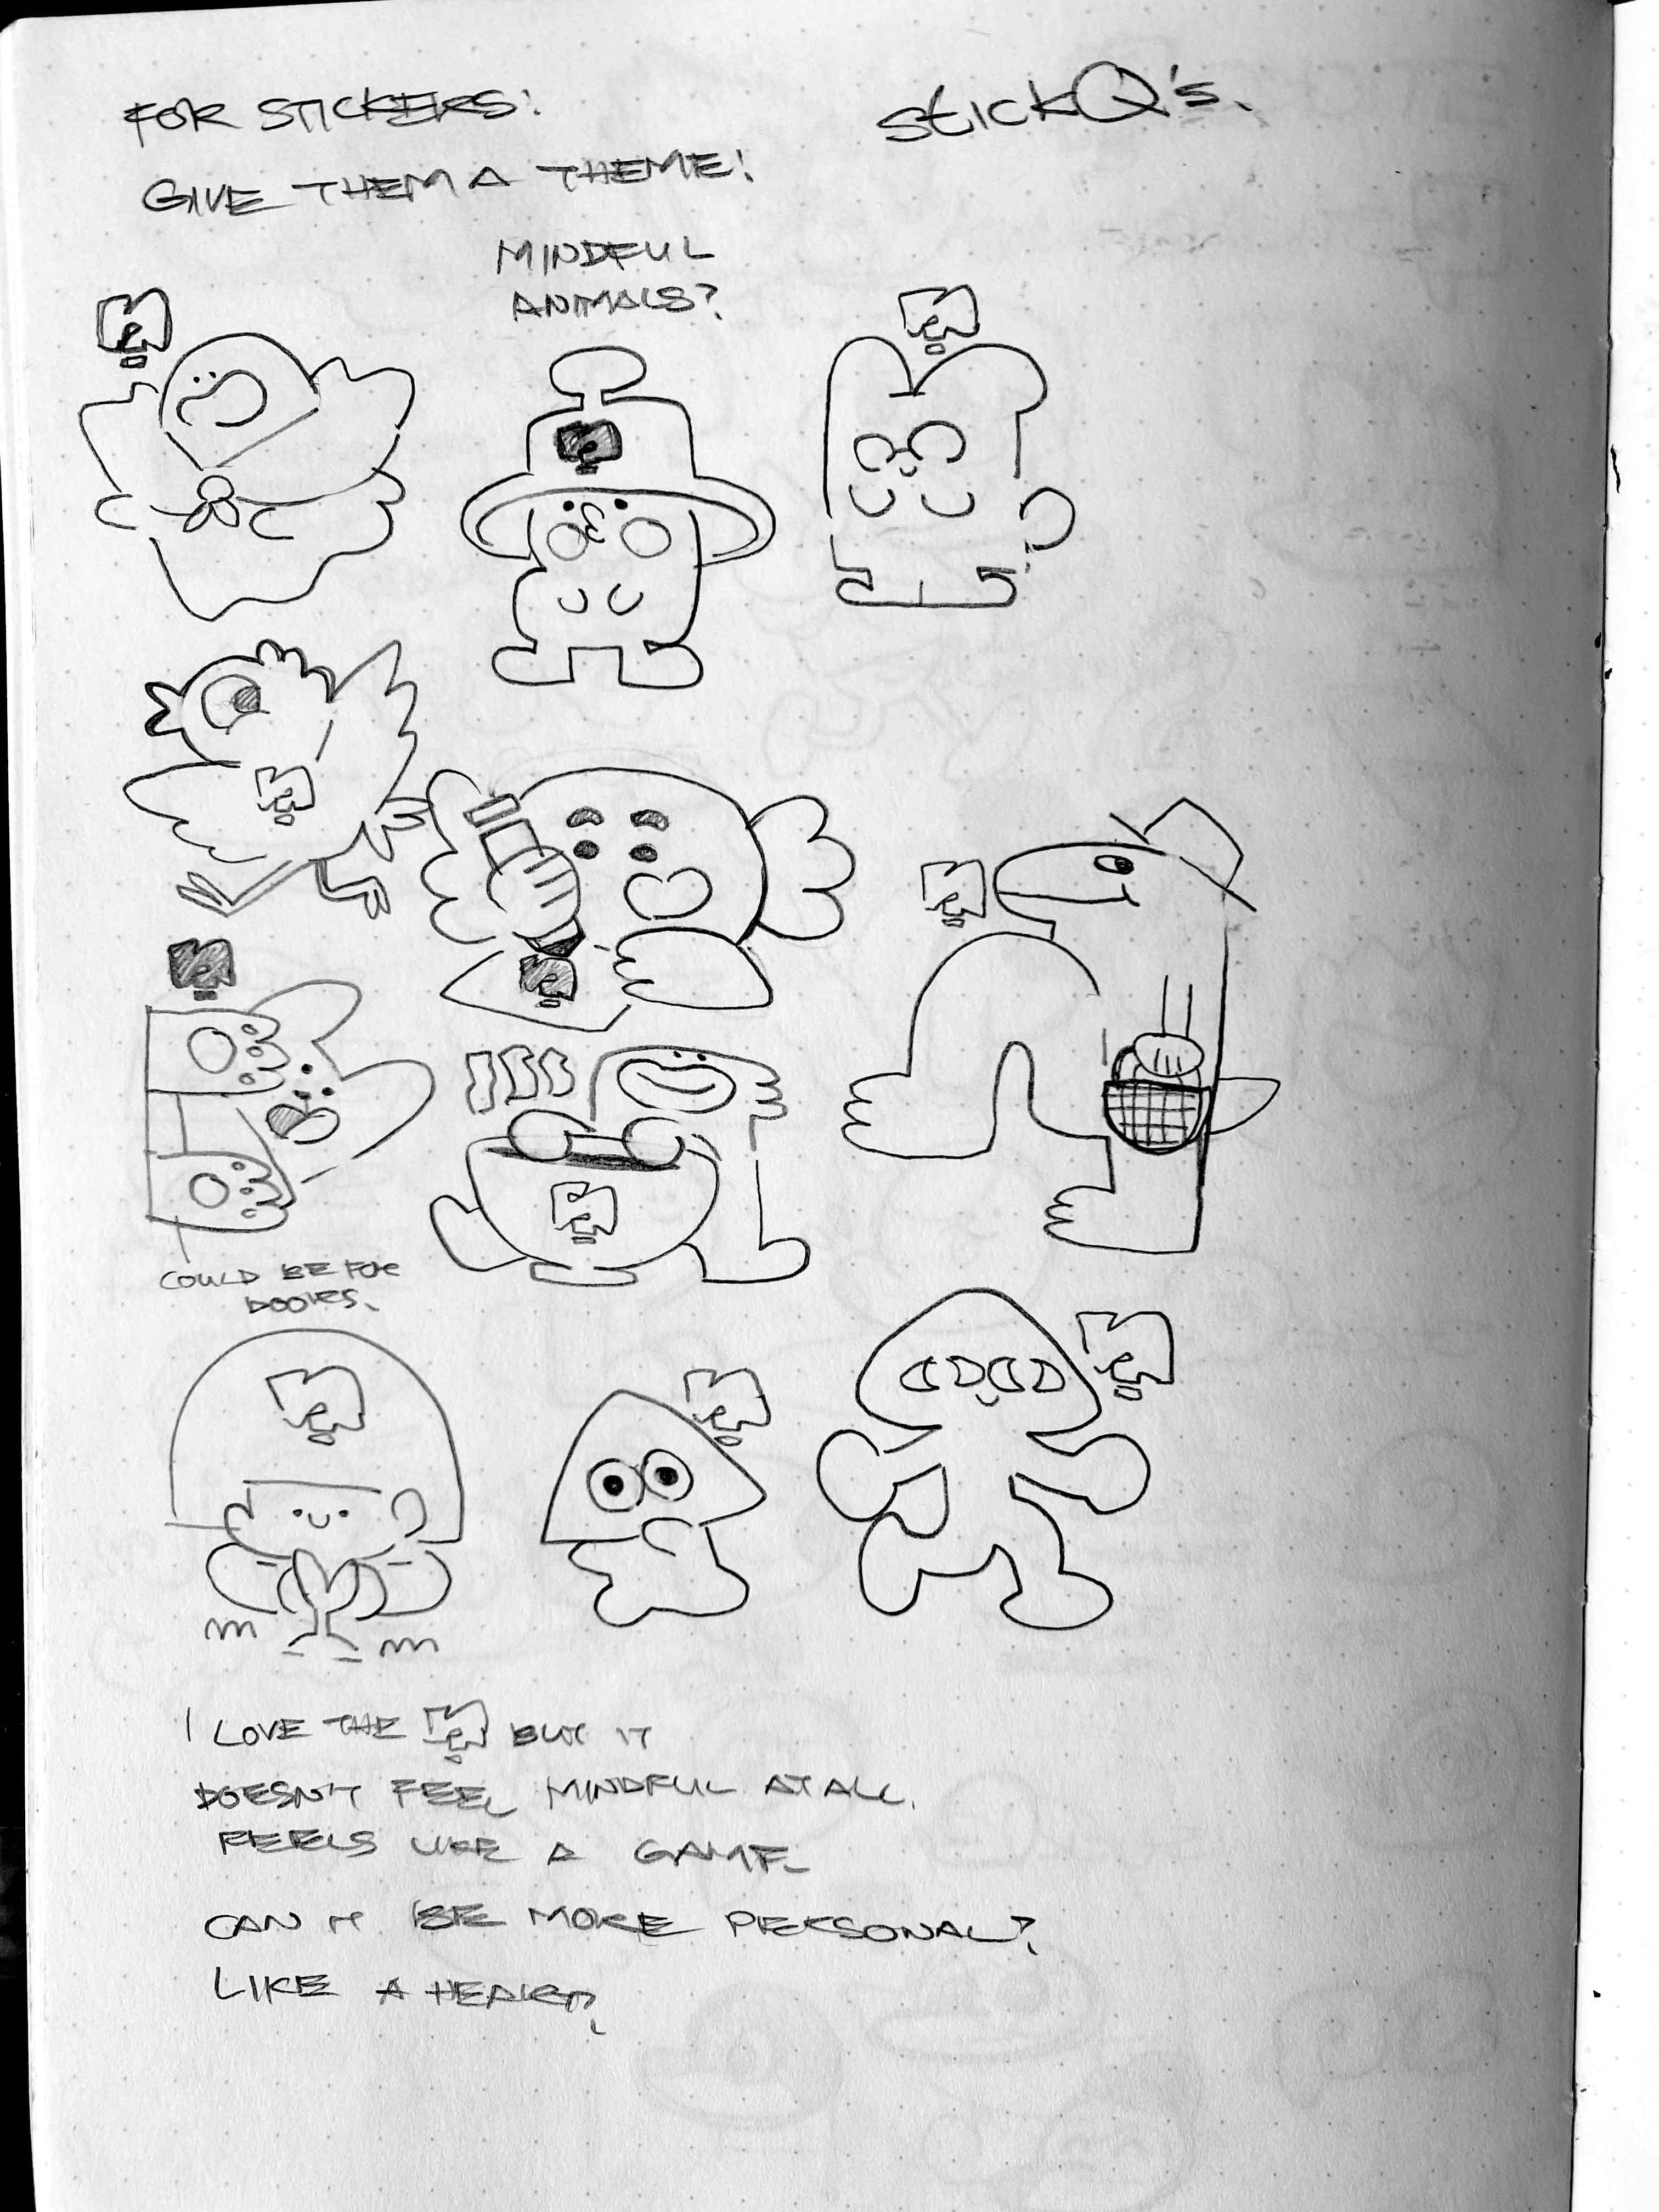 FOR STICKERS!
stickQ's.
GIVE THEM A THEME!
MINDFUL
ANIMALS?
COULD BE FOR
I LOVE THE BUT IT
DOESN'T FEEL MINDFUL AT ALL.
FEELS LIKE A GAME.
CAN IT BE MORE PERSONAL?
LIKE A HEART?